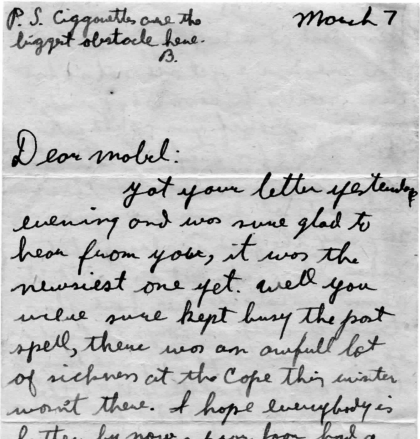 P. S. Ciggarettes are the
biggest obstacle here.
B.
March 7
Dear Mabel:
Got your letter yesterday
evening and was sure glad to
hear from your, it was the
newsiest one yet. Well you
were sure kept busy the past
spell, there was an awfull lot
of sickness at the Cape this winter
wasn't there. I hope everybody is
better by now, poor
had a